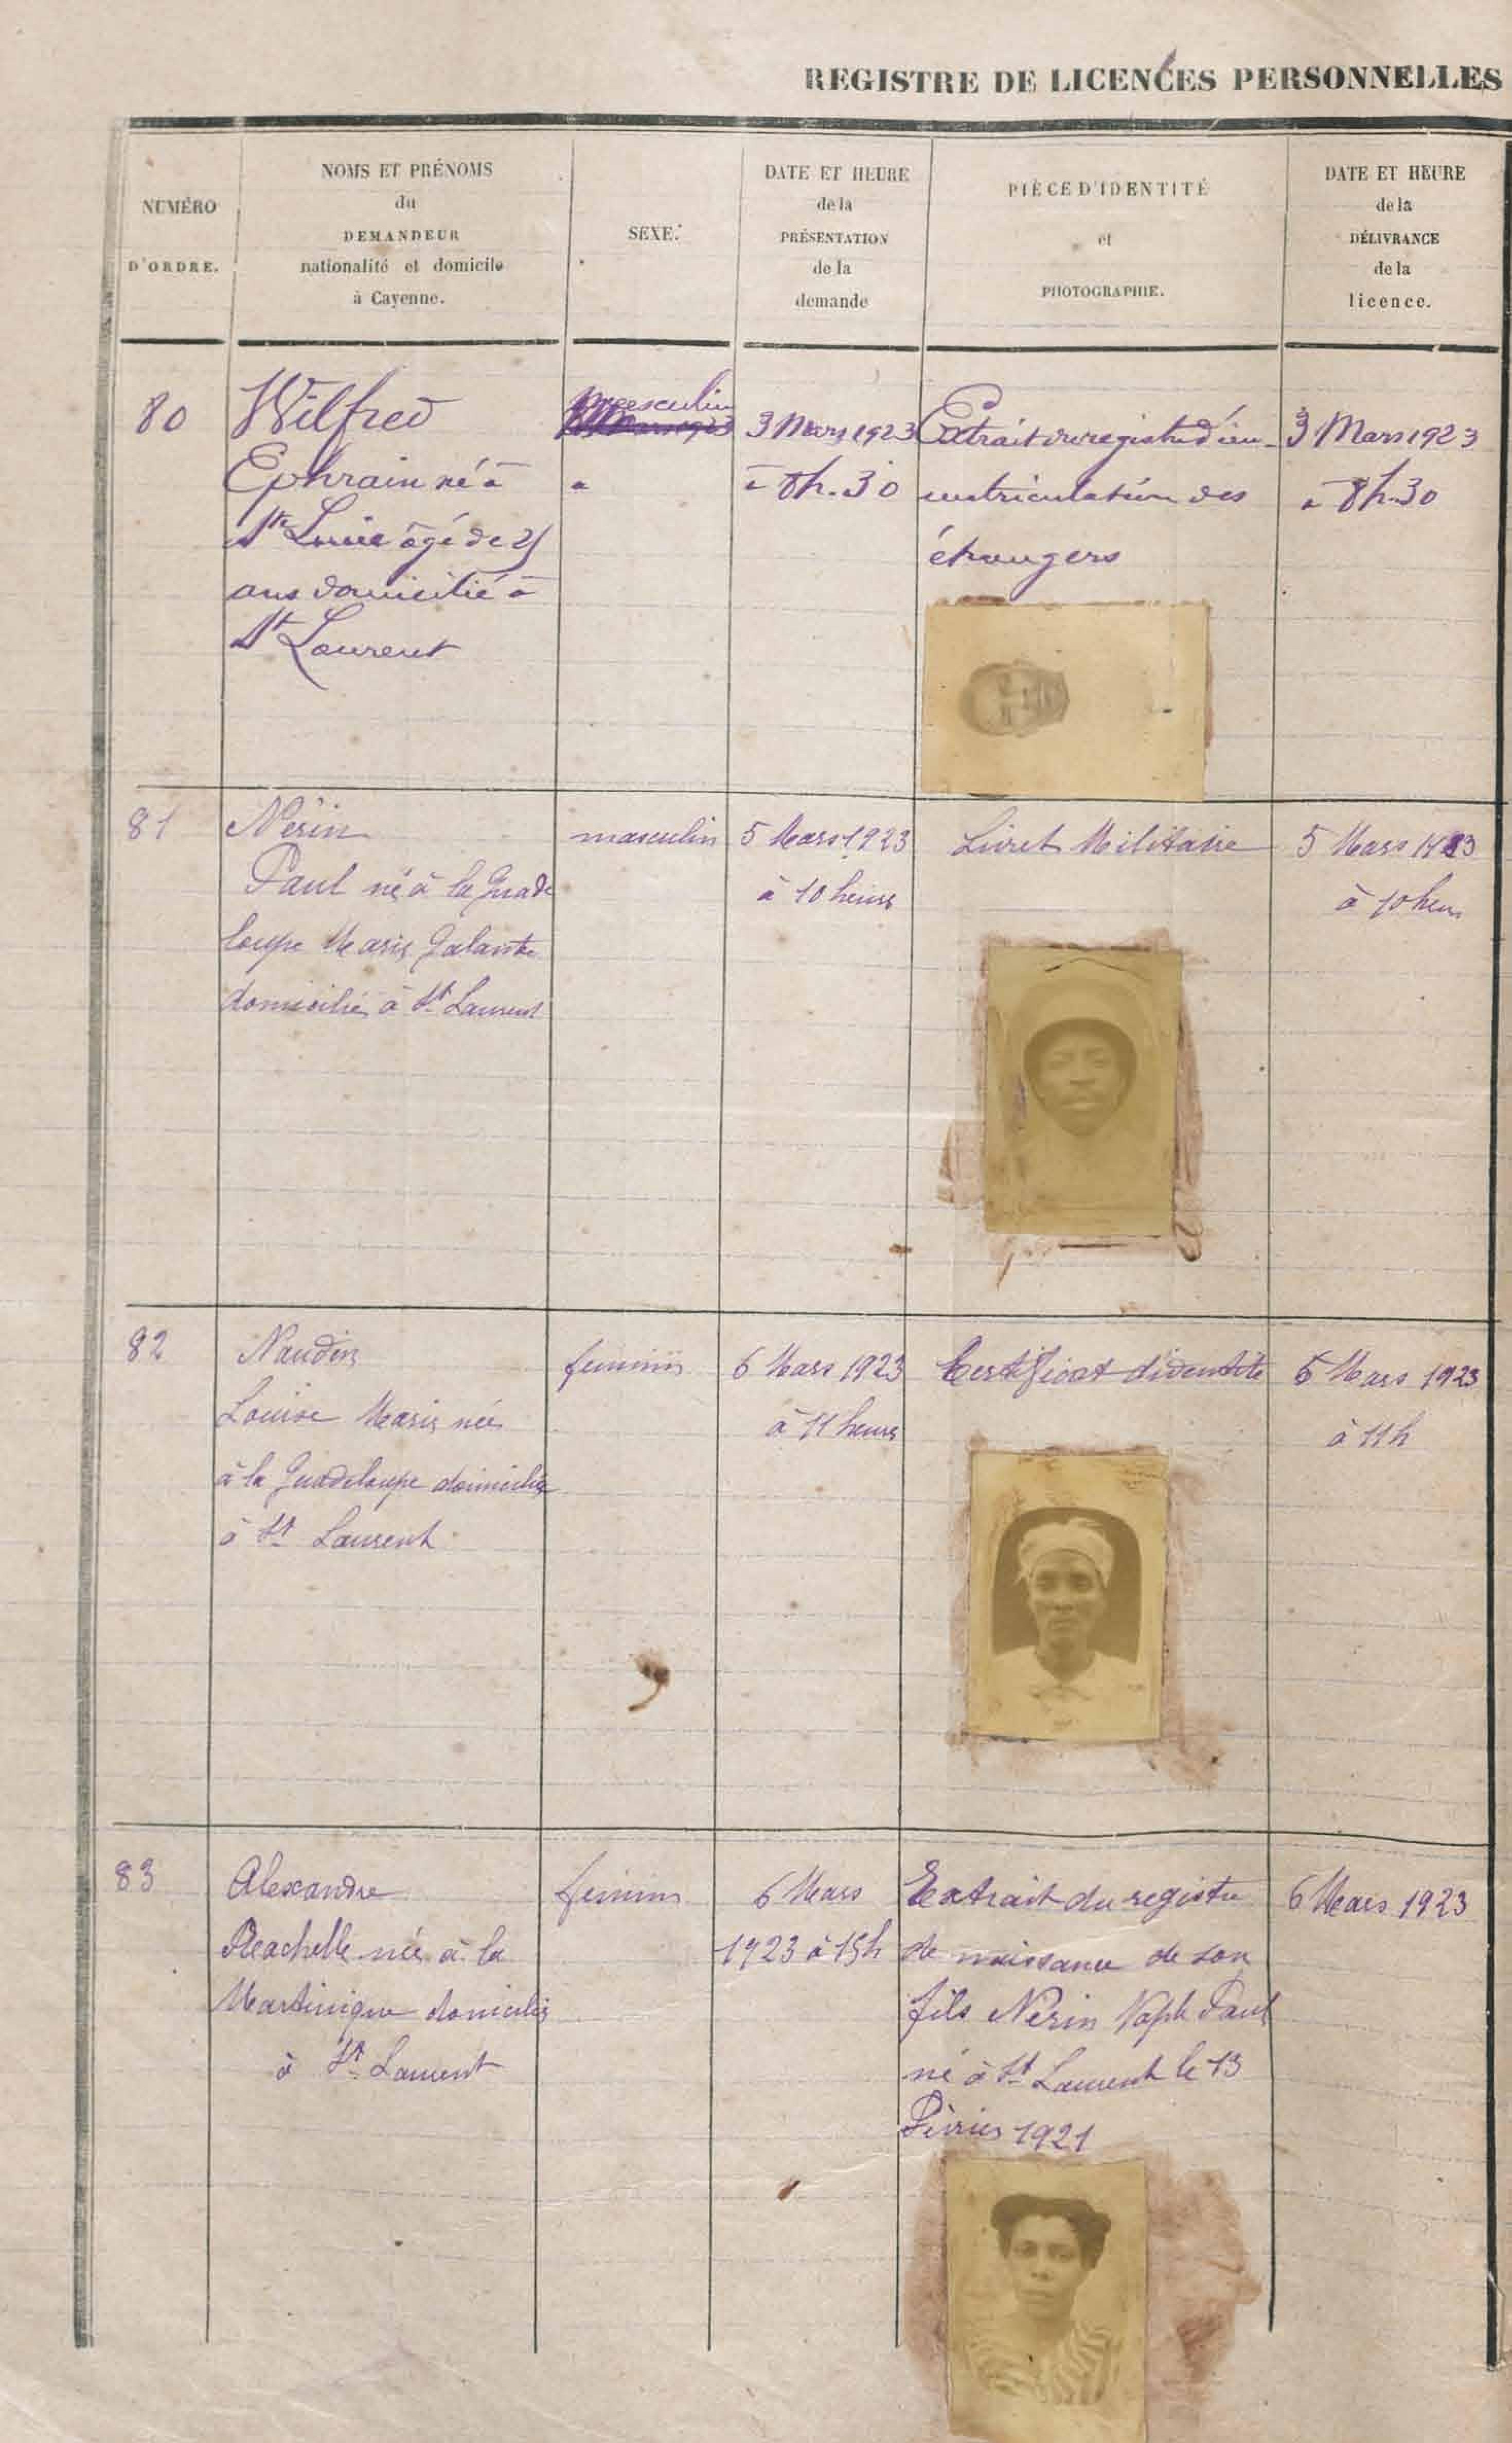 REGISTRE DE LICENCES PERSONNELLES
NUMÉRO
D'ORDRE.
NOMS ET PRÉNOMS
du
DEMANDEUR
nationalité et domicile
à Cayenne.
SEXE.
DATE ET HEURE
de la
PRÉSENTATION
de la
demande
PIÈCE D'IDENTITÉ
et
PHOTOGRAPHIE.
DATE ET HEURE
de la
DÉLIVRANCE
de la
licence.
80
Wilfred
Ephrain né à
Ste Lucie âgé de
ans domicilié à
St Laurent
masculin
3 Mars 1923
à 8h.30
Extrait du registre d'im-
matriculation des
étrangers
3 Mars 1923
à 8h.30
81
Nérin
Paul né à la Guade
loupe Marie Galante
domicilié à St Laurent
masculin
5 Mars 1923
à 10 heures
Livret Militaire
5 Mars 1923
à 10 heu
82
Naudin
Louise Marie née
à la Guadeloupe domiciliée
à St Laurent
feminin
6 Mars 1923
à 11 heures
Certificat d'identité
6 Mars 1923
à 11h
83
Alexandre
Reachelle née à la
Martinique domiciliée
à St Laurent
feminin
6 Mars
1923 à 15h
Extrait du registre
de naissance de son
fils Nérin Paul
né à St Laurent le 13
1921
6 Mars 1923